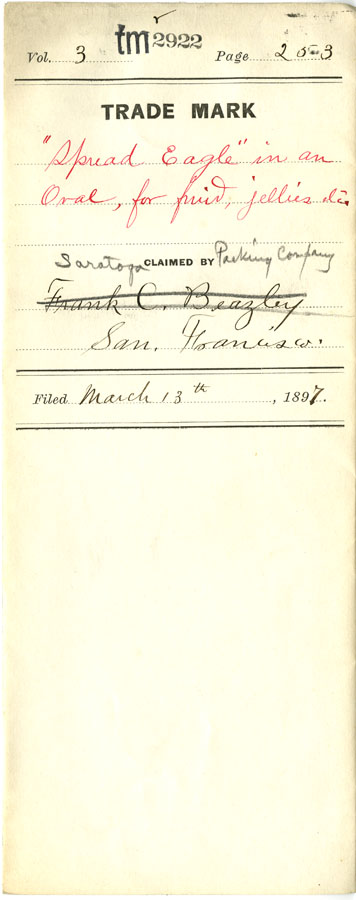 tm 2922
Vol. 3 Page 253
TRADE MARK
"Spread Eagle" in an
Oval, for fruit, jellies etc.
Saratoga CLAIMED BY Packing Company
Frank C. Beazley
San. Francisco.
Filed March 13th, 1897.